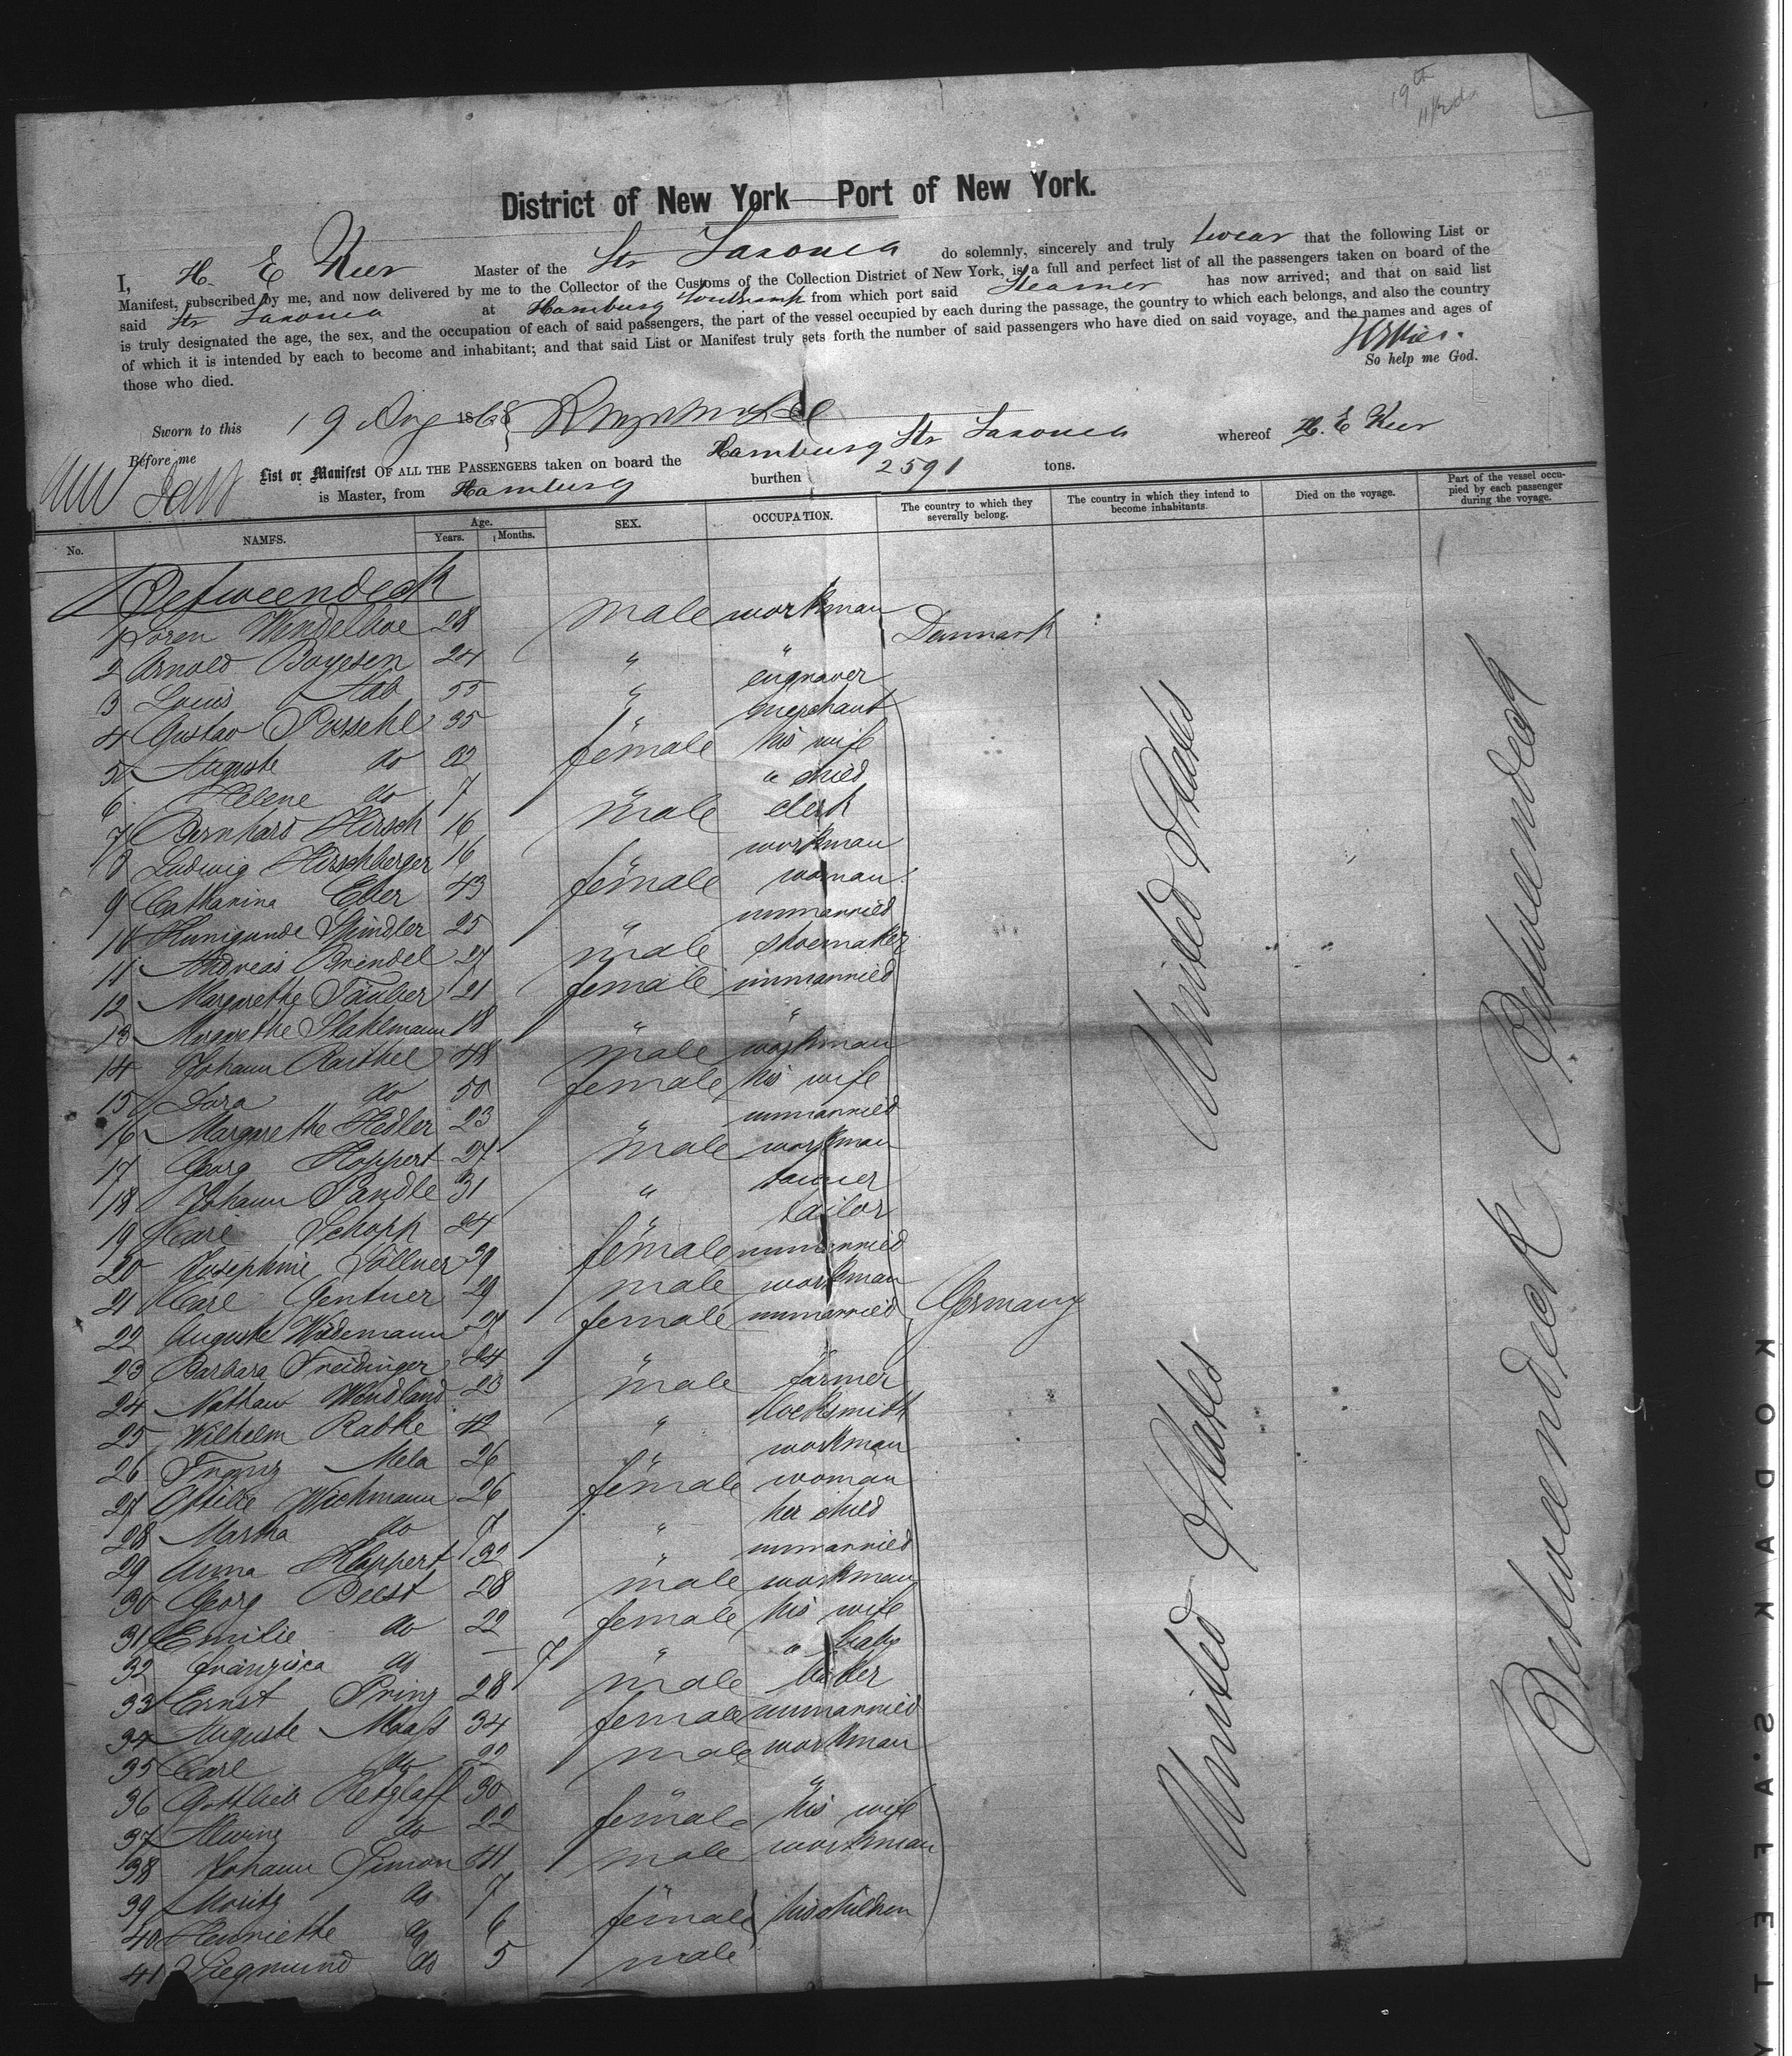 19th
District of New York—Port of New York.
I, H. E Kier Master of the Str Saxonia do solemnly, sincerely and truly swear that the following List or
Manifest, subscribed by me, and now delivered by me to the Collector of the Customs of the Collection District of New York, is a full and perfect list of all the passengers taken on board of the
said Str Saxonia at Hamburg from which port said Steamer has now arrived; and that on said list
is truly designated the age, the sex, and the occupation of each of said passengers, the part of the vessel occupied by each during the passage, the country to which each belongs, and also the country
of which it is intended by each to become and inhabitant; and that said List or Manifest truly sets forth the number of said passengers who have died on said voyage, and the names and ages of
those who died.
So help me God.
Sworn to this 19 Aug 1868
Before me
List or Manifest OF ALL THE PASSENGERS taken on board the Hamburg Str Saxonia whereof H. E Kier
is Master, from Hamburg burthen 2591 tons.
No. NAMES. Age. Years. Months. SEX. OCCUPATION. The country to which they severally belong. The country in which they intend to become inhabitants. Died on the voyage. Part of the vessel occupied by each passenger during the voyage.
Betweendeck
1 Soren Wendelboe 28 male workman Denmark
2 Arnold Boyesen 24 " "
3 Louis 55 " engraver
4 Gustav Possehl 35 " merchant
5 Auguste do female his wife
6 Helene do 7 " " child
7 Bernhard Hirsch 16 male clerk
8 Ludwig Hirschberger 16 " workman
9 Catharina Eber 43 female woman
10 Kunigunde Spindler 25 " unmarried
11 Andreas Brendel 27 male shoemaker
12 Margarethe Täuber 21 female unmarried
13 Margarethe Stahlmann 18 " "
14 Johann Barthel 48 male workman
15 Dora do 50 female his wife
16 Margarethe Hedler 23 " unmarried
17 Georg Hoppert 27 male workman
18 Johann Pandle 31 " tanner
19 Carl Schopp 24 " tailor
20 Josephine Söllner 39 female unmarried
21 Carl Gentner 29 male workman
22 Auguste Widemann 27 female unmarried Germany
23 Barbara Freidinger 24 " "
24 Nathan Wendland 23 male farmer
25 Wilhelm Radke 42 " locksmith
26 Franz Mela 26 " workman
27 Ottilie Wichmann 26 female woman
28 Martha do 7 " her child
29 Anna Klappert 32 " unmarried
30 Georg Beest 28 male workman
31 Emilie do 22 female his wife
32 Franzisca do — 7 " " baby
33 Ernst Prinz 28 male baker
34 Auguste Maaß 34 female unmarried
35 Carl do 22 male workman
36 Gottlieb Retzlaff 30 " "
37 Alwine do 22 female his wife
38 Johann Simon 41 male workman
39 Moritz do 7 "
40 Henriette do 6 female his children
41 Siegmund do 5 male
United States
United States
Betweendeck
Betweendeck
KODAK
SAFETY